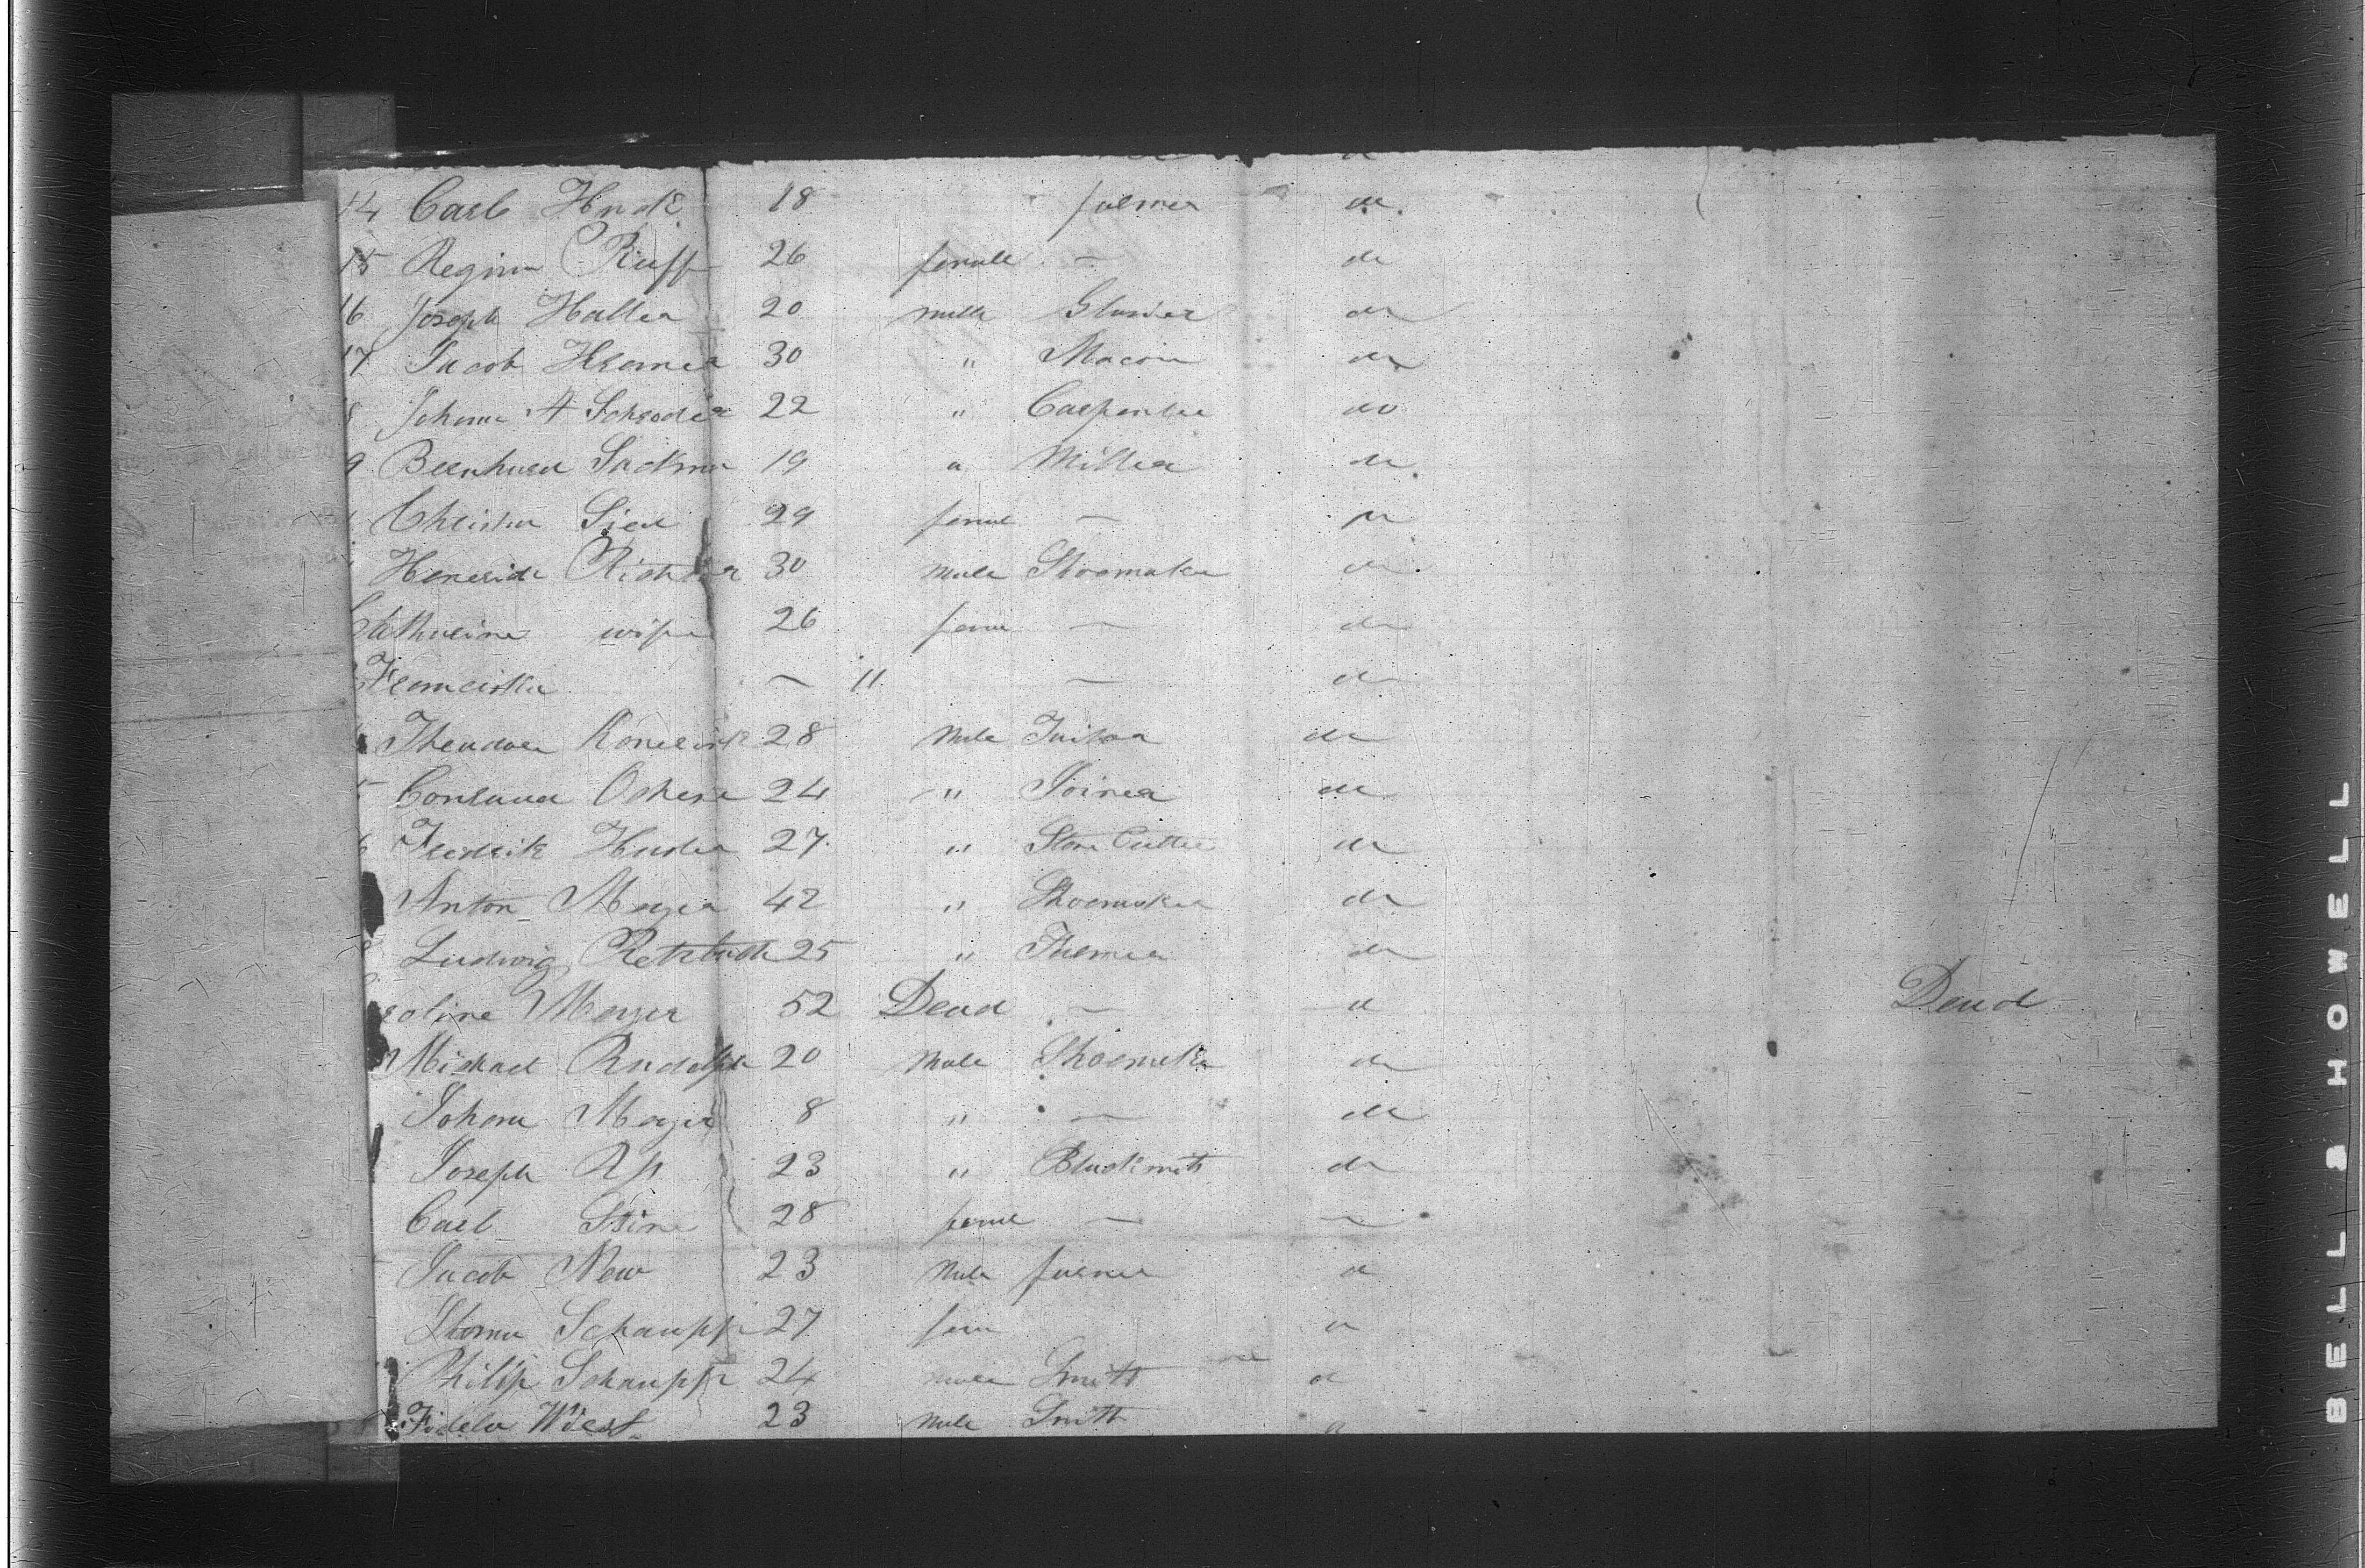 14 Carl Huck 18 farmer do
15 Regina Ruff 26 female — do
16 Joseph Haller 20 male Glasier do
17 Jacob Kramer 30 " Mason do
8 Johann A Schroder 22 " Carpenter do
9 Bernhard Sackman 19 " Miller do
Christin 29 femal — do
Henerich Richter 30 male Shoemaker do
Catharine wife 26 fem — do
Franciska — 11 — do
Theodor 28 Male Tailor do
5 24 " Joiner do
6 Fredrik Huder 27 " Stone Cutter do
Anton Meyer 42 " Shoemaker do
8 Ludwig 25 " Farmer do
roline Meyer 52 Dead — do Dead
Michael Rudolph 20 Male Shoemaker do
Johann Meyer 8 " — do
Joseph 23 " Blacksmith do
Carl Stine 28 femal — —
Jacob New 23 Male farmer do
Schaupp 27 fem do
Philip Schaupp 24 male Smith do
8 Fidela Wiest 23 Male Smith do
BELL & HOWELL